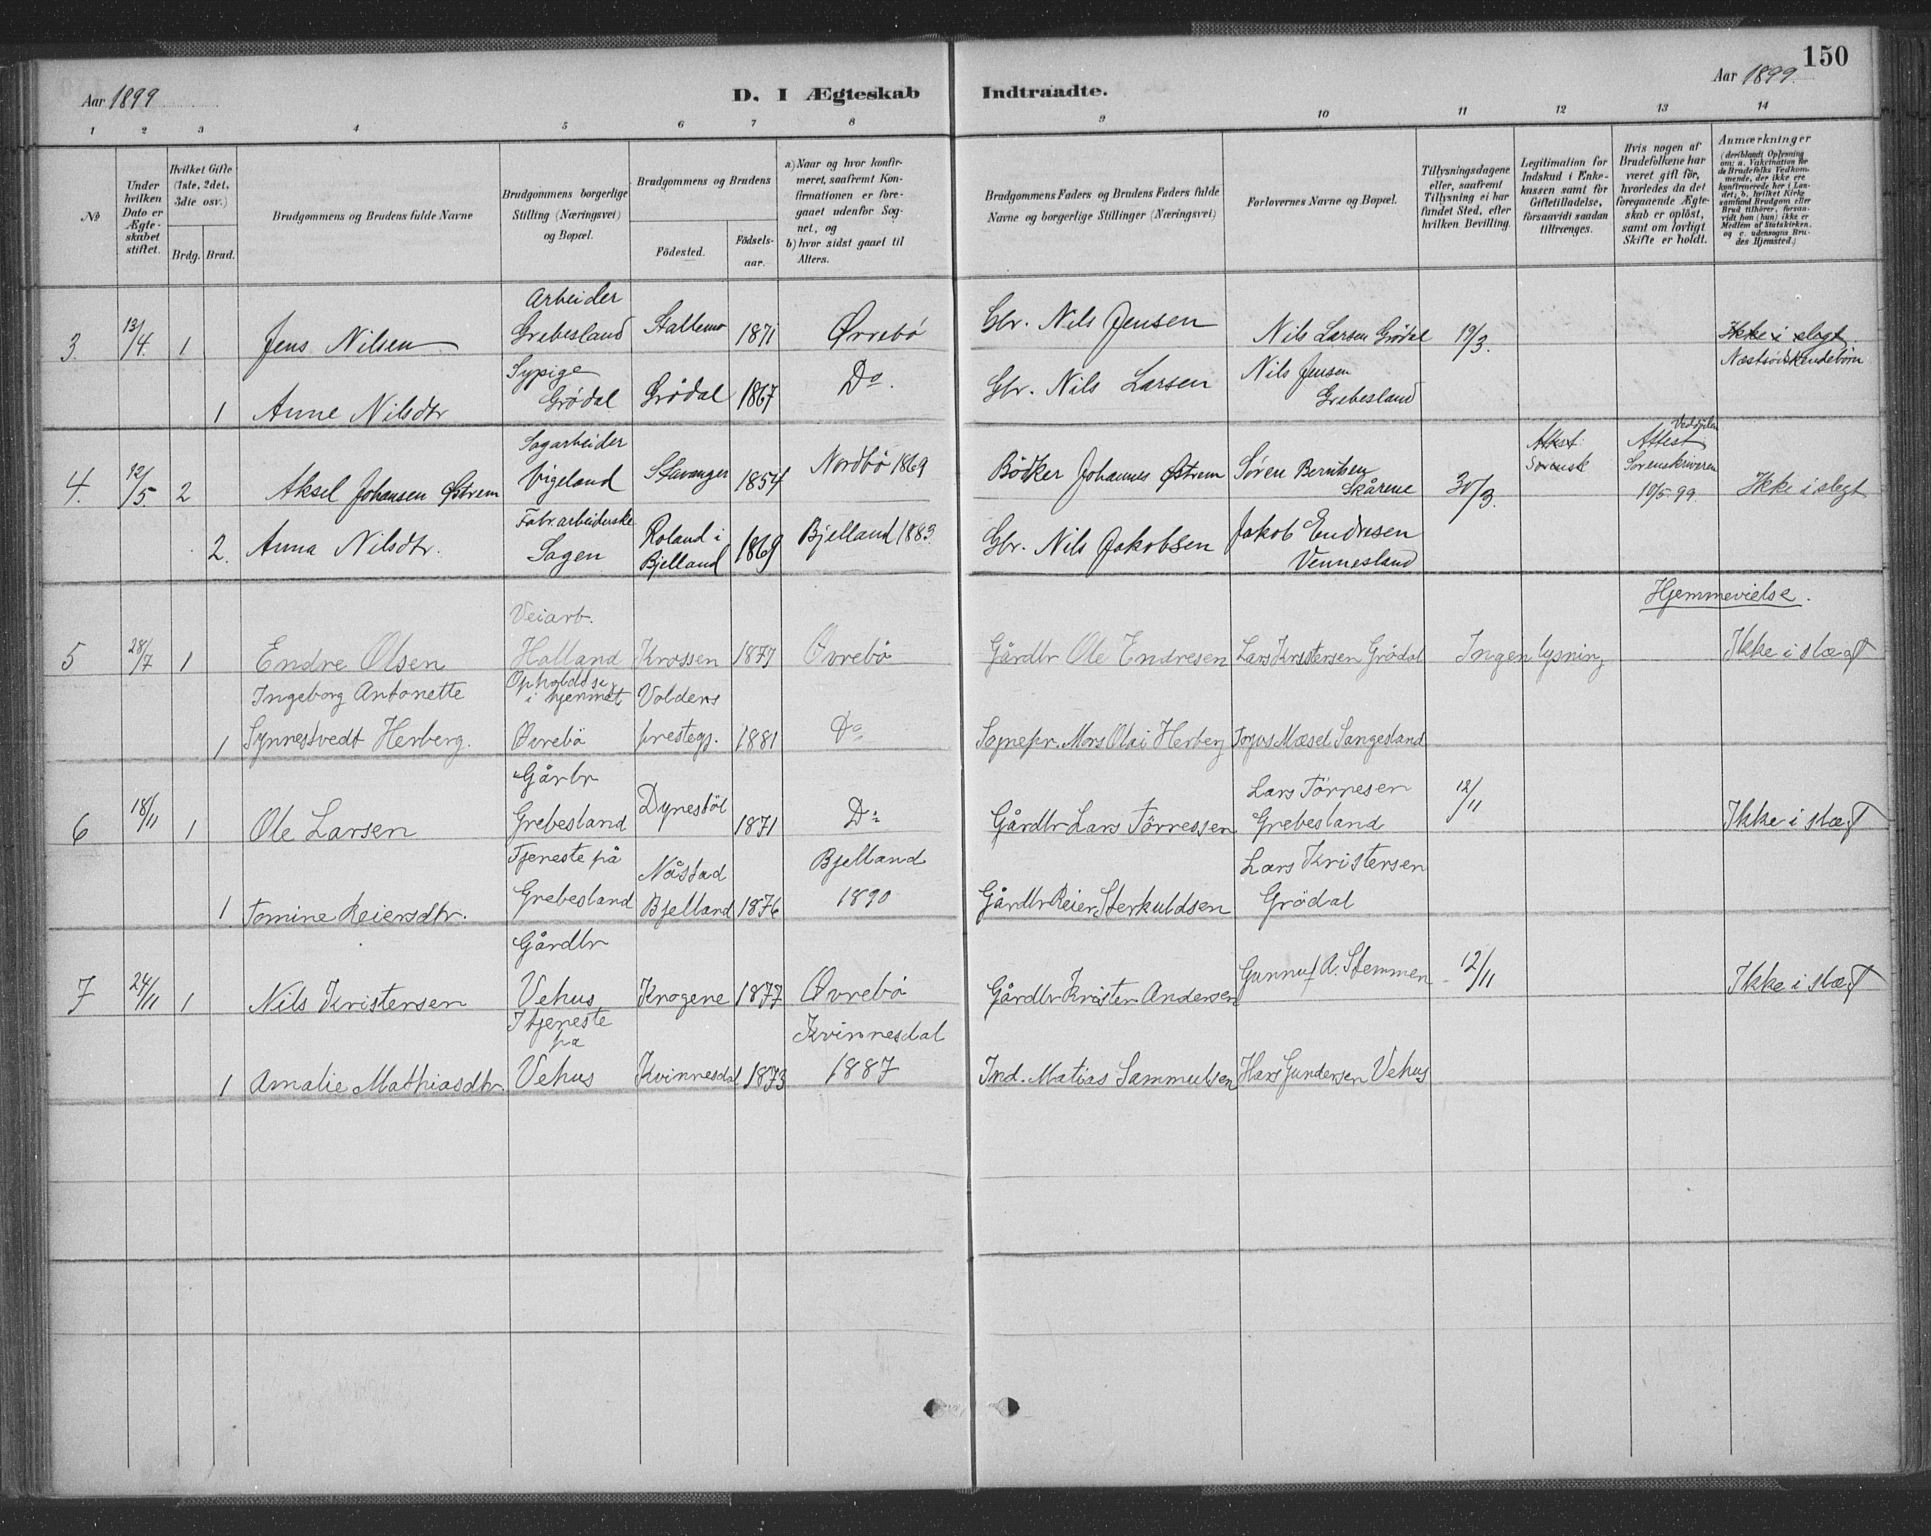 150
Aar 1899
D. I Ægteskab Indtraadte.
Aar 1899.
1 2 3 4 5 6 7 8 9 10 11 12 13 14
No
Under hvilken Dato er Ægteskabet stiftet.
Hvilket Gifte (1ste, 2det, 3die osv.)
Brdg. Brud.
Brudgommens og Brudens fulde Navne
Brudgommens borgerlige Stilling (Næringsvei) og Bopæl.
Brudgommens og Brudens
Födested.
Födselsaar.
a) Naar og hvor konfirmeret, saafremt Konfirmationen er foregaaet udenfor Sognet, og
b) hvor sidst gaaet til Alters.
Brudgommens Faders og Brudens Faders fulde Navne og borgerlige Stillinger (Næringsvei)
Forlovernes Navne og Bopæl.
Tillysningsdagene eller, saafremt Tillysning ei har fundet Sted, efter hvilken Bevilling.
Legitimation for Indskud i Enkekassen samt for Giftetilladelse, forsaavidt saadan tiltrænges.
Hvis nogen af Brudefolkene har været gift för, hvorledes da det foregaaende Ægteskab er oplöst, samt om lovligt Skifte er holdt.
Anmærkninger
(deriblandt Oplysning om: a. Vakcination for de Brudefolks Vedkommende, der ikke ere konfirmerede her i Landet; b. hvilket Kirkesamfund Brudgom eller Brud tilhörer, forsaavidt han (hun) ikke er Medlem af Statskirken, og c. udensogns Brudes Hjemsted.)
3. 13/4. 1 Jens Nilsen Arbeider Grebesland Stallemo 1871 Øvrebö Gbr. Nils Jensen Nils Larsen Grødal 19/3. Ikke i slegt. Næstsødskendebørn
1 Anne Nilsdtr Sypige Grødal Grødal 1867 Do. Gbr. Nils Larsen Nils Jensen Grebesland
4. 12/5. 2 Aksel Johansen Østrem Sagarbeider Vigeland Stavanger 1854 Nordbö 1869 Bödker Johannes Østrem Søren Berntsen Skårene 30/3. Attest Sorensk Attest Sorenskriveren 10/5 99. Ikke i slegt
2. Anna Nilsdtr. Fabr.arbeiderske Sagen Roland i Bjelland 1869 Bjelland 1883. Gbr. Nils Jakobsen Jakob Endresen Vennesland
Hjemmevielse.
5 28/7 1 Endre Olsen Veiarb. Holland Krossen 1877 Øvrebö Gårdbr Ole Endresen Lars Kristersen Grödal Ingen lysning Ikke i slægt
1 Ingeborg Antonette Synnestvedt Herberg. Opholdt se i hjemmet Øvrebö Volders prestegj. 1881 Do Sognepr. Mons Olai Herberg Torjus Mæsel Sangesland
6 18/11 1 Ole Larsen Gårbr Grebesland Dynestöl 1871 Do Gårdbr Lars Törressen Lars Törresen Grebesland 12/11 Ikke i slægt
1 Tomine Reiersdtr. Tjeneste på Grebesland Nåstad Bjelland 1876 Bjelland 1890 Gårdbr Reier Sterkuldsen Lars Kristersen Grödal
7 24/11 1 Nils Kristersen Gårdbr Vehus Krogene 1877 Øvrebö Gårdbr Krister Andersen Gunnuf A. Stemmen 12/11 Ikke i slægt
1 Amalie Mathiasdtr I tjeneste pa Vehus Kvinnesdal 1873 Kvinnesdal 1887 Ind. Matias Sammuelsen Hans Gundersen Vehus